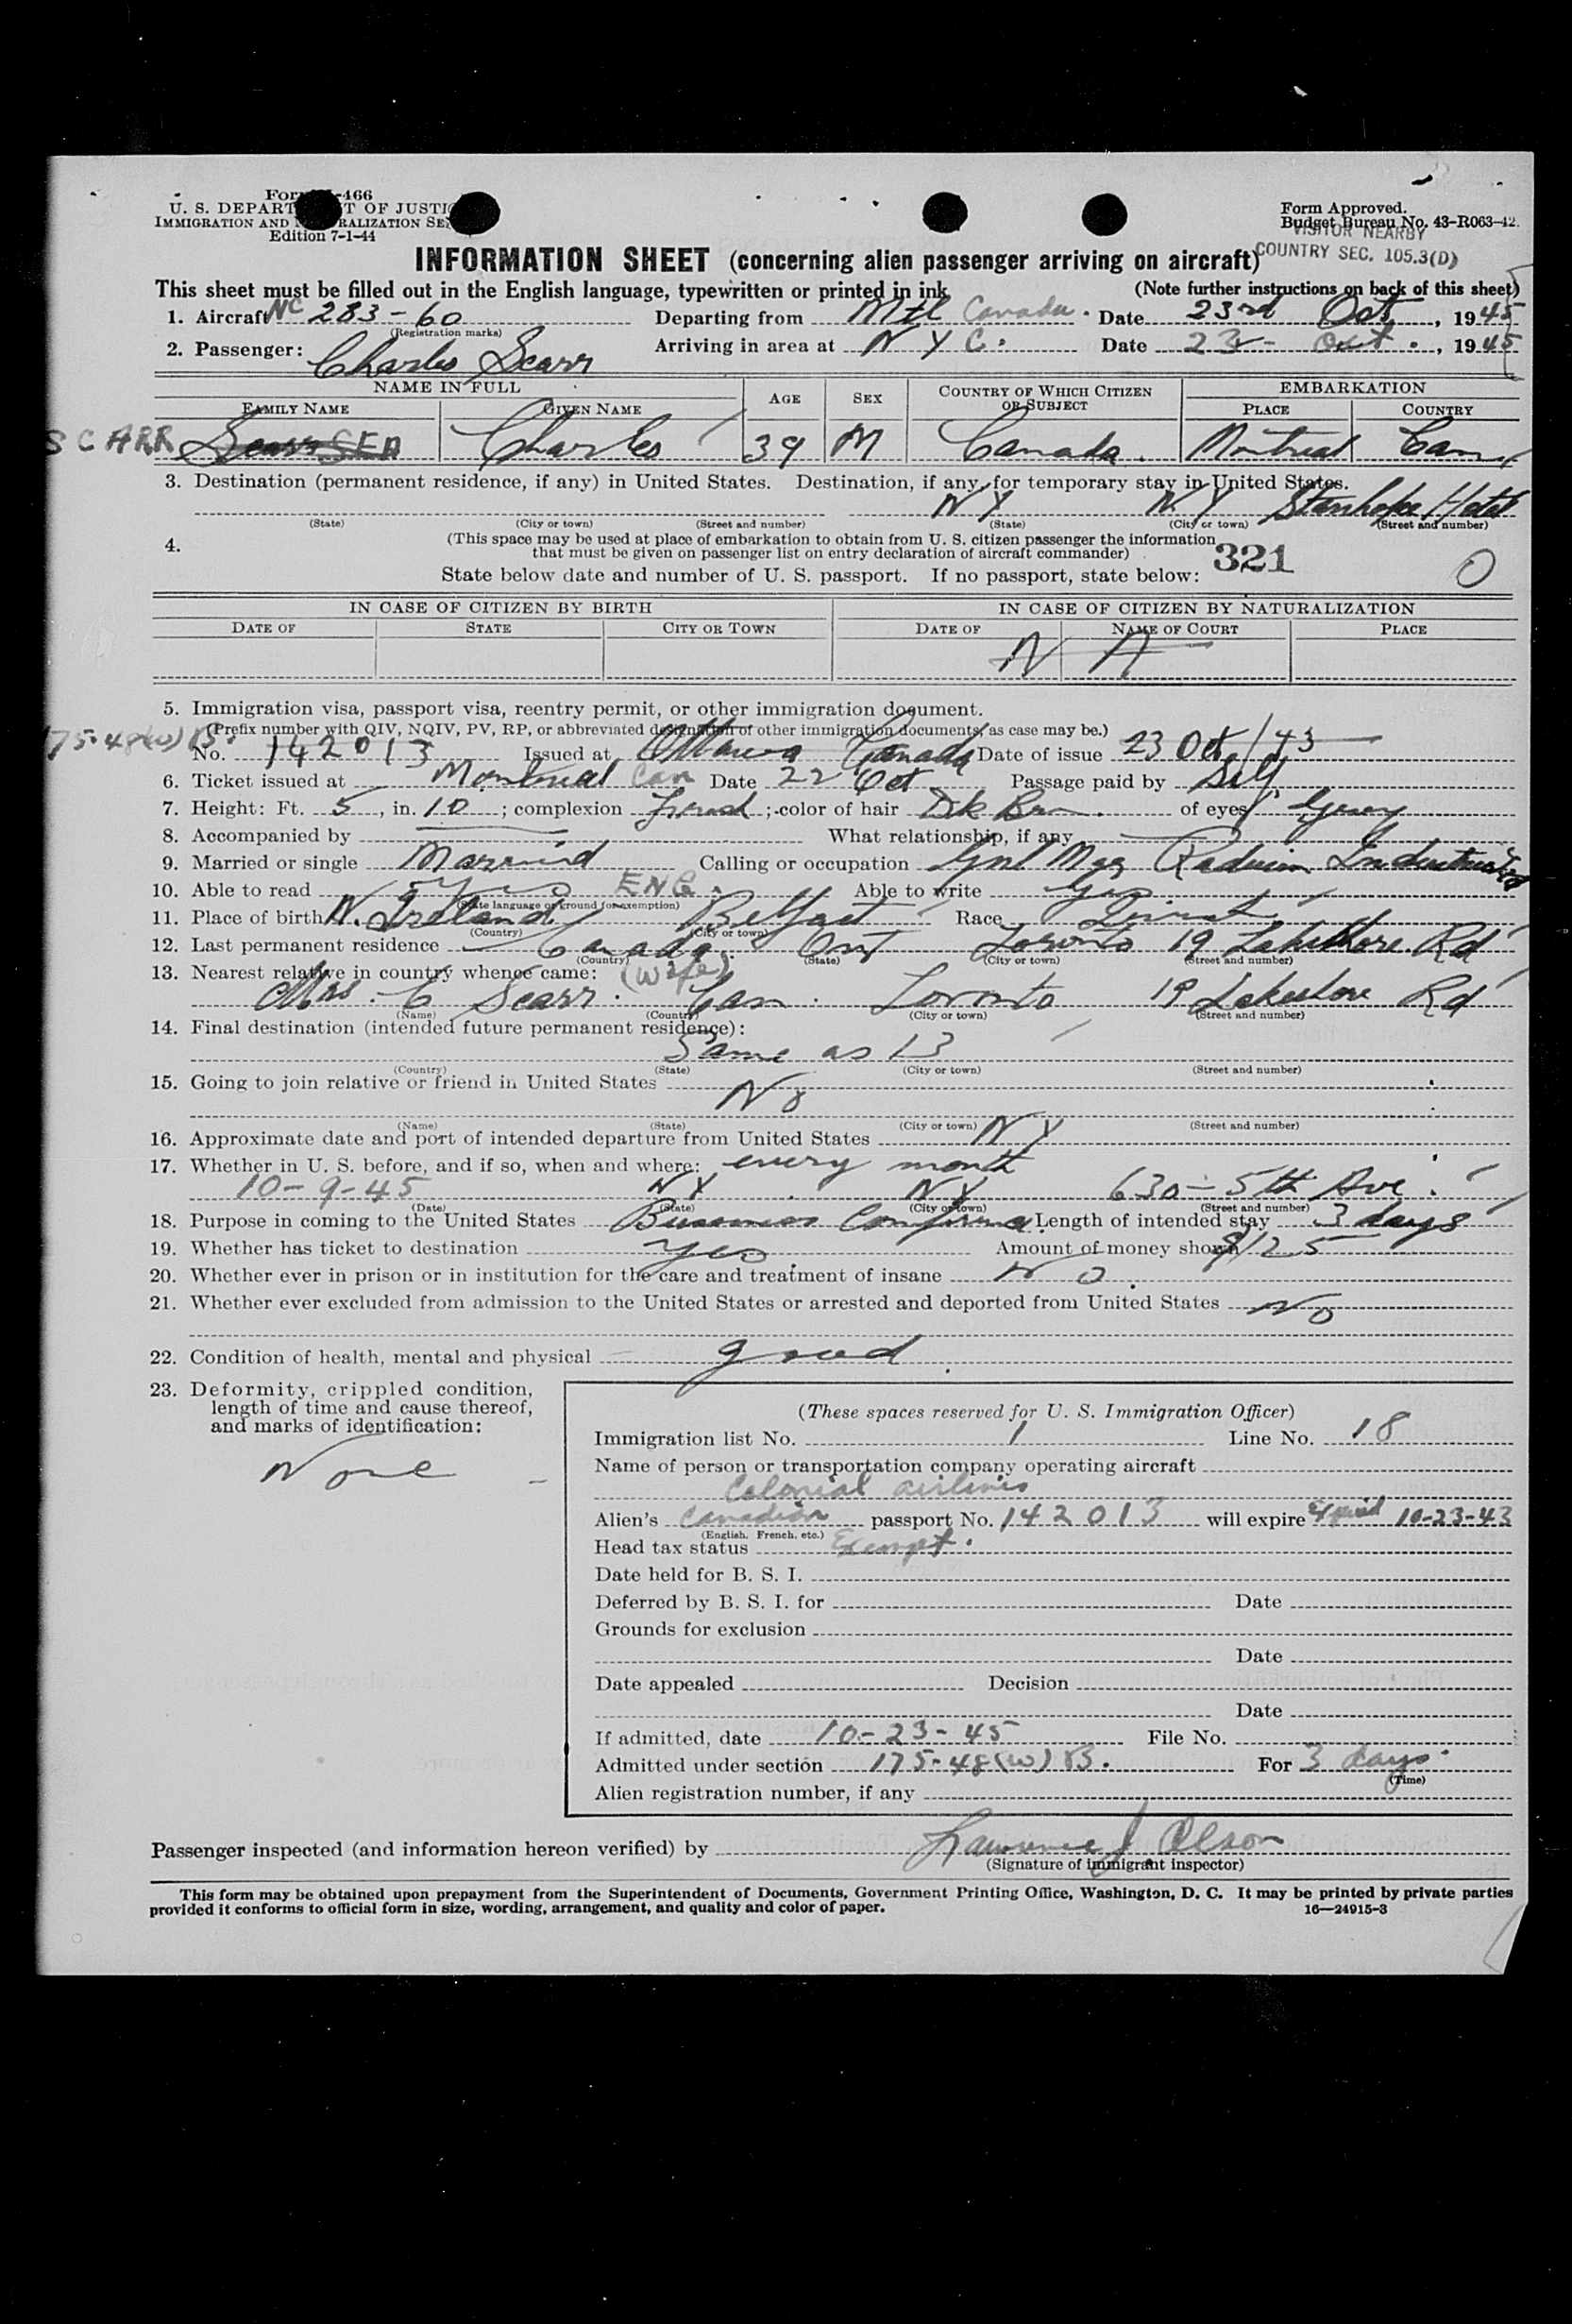 Form I-466
U. S. DEPARTMENT OF JUSTICE
IMMIGRATION AND NATURALIZATION SE
Edition 7-1-44
Form Approved.
Budget Bureau No. 43-R063-42.
VISITOR NEARBY
COUNTRY SEC. 105.3(D)
INFORMATION SHEET (concerning alien passenger arriving on aircraft)
This sheet must be filled out in the English language, typewritten or printed in ink (Note further instructions on back of this sheet)
1. Aircraft NC 283-60 Departing from Mtl Canada. Date 23rd Oct, 1945
(Registration marks)
2. Passenger: Charles Scarr Arriving in area at N Y C. Date 23- Oct., 1945
NAME IN FULL AGE SEX COUNTRY OF WHICH CITIZEN OR SUBJECT EMBARKATION
FAMILY NAME GIVEN NAME PLACE COUNTRY
SCARR Scarr Charles 39 M Canada. Montreal Can
3. Destination (permanent residence, if any) in United States. Destination, if any, for temporary stay in United States.
N Y N.Y Stanhope Hotel
(State) (City or town) (Street and number) (State) (City or town) (Street and number)
4. (This space may be used at place of embarkation to obtain from U. S. citizen passenger the information
that must be given on passenger list on entry declaration of aircraft commander)
321 0
State below date and number of U. S. passport. If no passport, state below:
IN CASE OF CITIZEN BY BIRTH IN CASE OF CITIZEN BY NATURALIZATION
DATE OF STATE CITY OR TOWN DATE OF NAME OF COURT PLACE
N A
5. Immigration visa, passport visa, reentry permit, or other immigration document.
175-48(w) B. (Prefix number with QIV, NQIV, PV, RP, or abbreviated designation of other immigration documents, as case may be.)
No. 142013 Issued at Ottawa Canada Date of issue 23 Oct/43
6. Ticket issued at Montreal Can Date 22 Oct Passage paid by Self
7. Height: Ft. 5, in. 10; complexion ; color of hair Dk Brn. of eyes Grey
8. Accompanied by What relationship, if any
9. Married or single Married Calling or occupation Gnl Mgr Radium Industries
10. Able to read Yes ENG. Able to write Yes
(State language or ground for exemption)
11. Place of birth N. Ireland Belfast Race Irish
(Country) (City or town)
12. Last permanent residence Canada Ont Toronto 19 Lakeshore Rd
(Country) (State) (City or town) (Street and number)
13. Nearest relative in country whence came: (wife)
Mrs. C Scarr. Can. Toronto 19 Lakeshore Rd
(Name) (Country) (City or town) (Street and number)
14. Final destination (intended future permanent residence):
Same as 13
(Country) (State) (City or town) (Street and number)
15. Going to join relative or friend in United States
No
(Name) (State) (City or town) (Street and number)
16. Approximate date and port of intended departure from United States N Y
17. Whether in U. S. before, and if so, when and where: every month
10-9-45 NY NY 630-5th Ave.
(Date) (State) (City or town) (Street and number)
18. Purpose in coming to the United States Business Conference Length of intended stay 3 days
19. Whether has ticket to destination Yes Amount of money shown $125
20. Whether ever in prison or in institution for the care and treatment of insane No.
21. Whether ever excluded from admission to the United States or arrested and deported from United States No
22. Condition of health, mental and physical good.
23. Deformity, crippled condition,
length of time and cause thereof,
and marks of identification:
None
(These spaces reserved for U. S. Immigration Officer)
Immigration list No. 1 Line No. 18
Name of person or transportation company operating aircraft
Colonial airlines
Alien's Canadian passport No. 142013 will expire Expired 10-23-43
(English, French, etc.)
Head tax status Exempt.
Date held for B. S. I.
Deferred by B. S. I. for Date
Grounds for exclusion
Date
Date appealed Decision
Date
If admitted, date 10-23-45 File No.
Admitted under section 175-48(w) B. For 3 days.
(Time)
Alien registration number, if any
Passenger inspected (and information hereon verified) by Lawrence J Olson
(Signature of immigrant inspector)
This form may be obtained upon prepayment from the Superintendent of Documents, Government Printing Office, Washington, D. C. It may be printed by private parties
provided it conforms to official form in size, wording, arrangement, and quality and color of paper. 16—24915-3